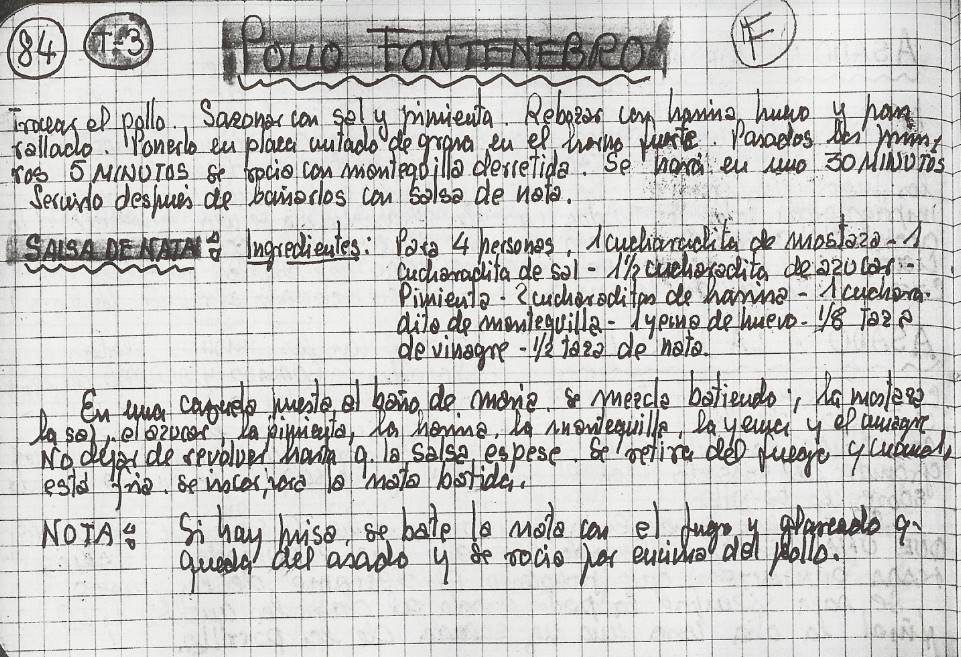 84 T-3 POLLO FONTENEBRO F
Trocear el pollo. Sazonar con sal y pimienta. Rebozar con harina, huevo y pan
rallado. Ponerlo en placa untado de grasa en el horno fuerte. Pasados los prime
ros 5 MINUTOS se rocia con mantequilla derretida. Se hará en uno 30 MINUTOS
Servirlo después de bañarlos con salsa de nata.
SALSA DE NATA: Ingredientes: Para 4 personas, 1 cucharadita de mostaza - 1
cucharadita de sal - 1½ cucharadita de azucar -
Pimienta - 2 cucharaditas de harina - 1 cuchara-
dita de mantequilla - 1 yema de huevo - 1/8 taza
de vinagre - ½ taza de nata.
En una cazuela puesta al baño de maria se mezcla batiendo; la mostaza
la sal, el azucar, la pimienta, la harina, la mantequilla, la yema y el
No dejar de revolver hasta q. la salsa espese. Se retira del fuego y cuando
está fria se incorpora la nata batida.
NOTA: Si hay prisa, se bate la nata con el jugo y q.
queda del asado y se rocia por encima del pollo.